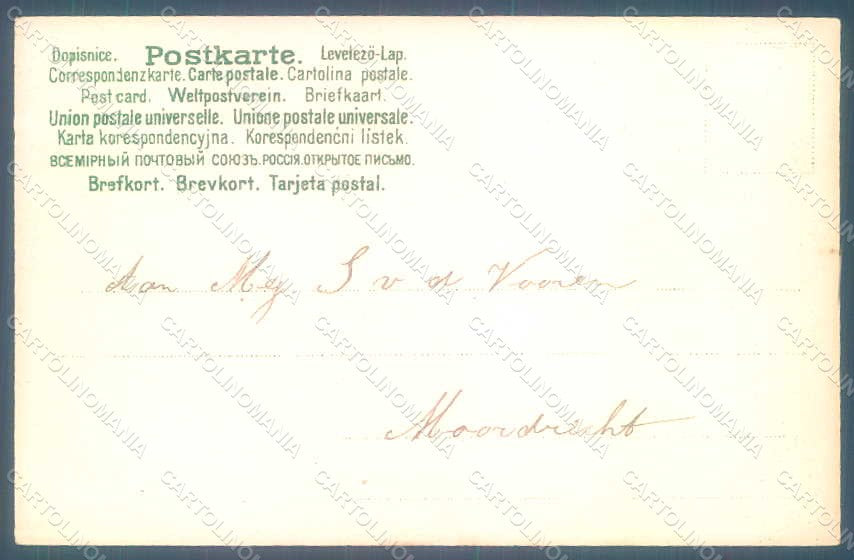 Dopisnice. Postkarte. Levelező-Lap.
Correspondenzkarte. Carte postale. Cartolina postale.
Post card. Weltpostverein. Briefkaart.
Union postale universelle. Unione postale universale.
Karta korespondencyjna. Korespondenčni listek.
ВСЕМІРНЫЙ ПОЧТОВЫЙ СОЮЗЪ. РОССІЯ. ОТКРЫТОЕ ПИСЬМО.
Brefkort. Brevkort. Tarjeta postal.
Aan Mej S v d Vooren
Moordrecht
CARTOLINOMANIA